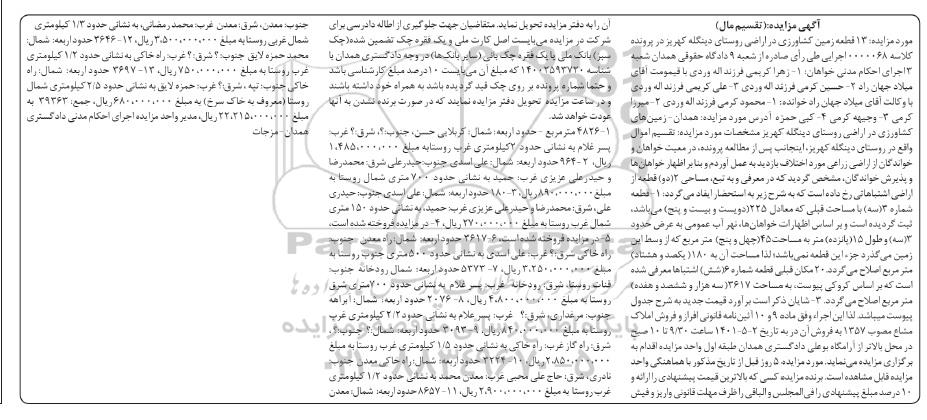 آگهی مزایده:( تقسیم مال)
مورد مزایده: ۱۳ قطعه زمین کشاورزی در اراضی روستای دینگله کهریز در پرونده
کلاسه ۰۰۰۰۰۶۸ اجرایی طی رأی صادره از شعبه ۹ دادگاه حقوقی همدان شعبه
۳ اجرای احکام مدنی خواهان: ۱- زهرا کریمی فرزند اله وردی با قیمومت آقای
میلاد جهان راد ۲- حسین کرمی فرزند اله وردی ۳- علی کریمی فرزند اله وردی
با وکالت آقای میلاد جهان راد خوانده: ۱- محمود کرمی فرزند اله وردی ۲- میرزا
کرمی ۳- وجیهه کرمی ۴- کبی حمزه آدرس مورد مزایده: همدان - زمین‌های
کشاورزی در اراضی روستای دینگله کهریز مشخصات مورد مزایده: تقسیم اموال
واقع در روستای دینگله کهریز، اینجانب پس از مطالعه پرونده، در معیت خواهان و
خواندگان از اراضی زراعی مورد اختلاف بازدید به عمل آوردم و بنابر اظهار خواهان‌ها
و پذیرش خواندگان، مشخص گردید که در معرفی و به تبع، مساحی ۲(دو) قطعه از
اراضی اشتباهاتی رخ داده است که به شرح زیر به استحضار ایفاد می‌گردد: ۱- قطعه
شماره ۳(سه) با مساحت قبلی که معادل ۲۲۵(دویست و بیست و پنج) می‌باشد،
ثبت گردیده است و بر اساس اظهارات خواهان‌ها، نهر آب عمومی به عرض حدود
۳(سه) و طول ۱۵(پانزده) متر به مساحت ۴۵(چهل و پنج) متر مربع که از وسط این
زمین می‌گذرد جزء این قطعه نمی‌باشد؛ لذا مساحت آن به ۱۸۰( یکصد و هشتاد)
متر مربع اصلاح می‌گردد. ۲۰ مکان قبلی قطعه شماره ۶(شش) اشتباها معرفی شده
است که بر اساس کروکی پیوست، به مساحت ۳۶۱۷(سه هزار و ششصد و هفده)
متر مربع اصلاح می گردد. ۳- شایان ذکر است برآورد قیمت جدید به شرح جدول
پیوست میباشد. لذا این اجراء وفق ماده ۹ و ۱۰ آئین‌نامه قانونی افراز و فروش املاک
مشاع مصوب ۱۳۵۷ به فروش آن در به تاریخ ۲-۵-۱۴۰۱ ساعت ۹/۳۰ تا ۱۰ صبح
در محل بالاتر از آرامگاه بوعلی دادگستری همدان طبقه اول واحد مزایده اقدام به
برگزاری مزایده می‌نماید. مورد مزایده ۵ روز قبل از تاریخ مذکور با هماهنگی واحد
مزایده قابل مشاهده است. برنده مزایده کسی که بالاترین قیمت پیشنهادی را ارائه و
۱۰ درصد مبلغ پیشنهادی را فی‌المجلس و الباقی را ظرف مهلت قانونی واریز و فیش
آن را به دفتر مزایده تحویل نماید. متقاضیان جهت جلوگیری از اطاله دادرسی برای
شرکت در مزایده می‌بایست اصل کارت ملی و یک فقره چک تضمین شده(چک
سبز) بانک ملی یا یک فقره چک بانی (سایر بانک‌ها) در وجه دادگستری همدان با
شناسه ۱۴۰۰۳۵۹۳۷۳۰ که مبلغ آن می‌بایست ۱۰ درصد مبلغ کارشناسی باشد
و حتما شماره پرونده بر روی چک قید گردیده باشد به همراه خود داشته باشند
و در ساعت مزایده تحویل دفتر مزایده نمایند که در صورت برنده نشدن به آنها
عودت خواهد شد.
۱-۴۸۲۶ متر مربع - حدود اربعه: شمال: کربلایی حسن، جنوب:؟، شرق:؟ غرب:
پسر غلام به نشانی حدود ۲ کیلومتری غرب روستا به مبلغ ۱,۴۸۵,۰۰۰,۰۰۰
ریال، ۲-۹۶۴ حدود اربعه: شمال: علی اسدی جنوب:حیدرعلی شرق: محمدرضا
و حیدرعلی عزیزی غرب: حمید به نشانی حدود ۷۰۰ متری شمال روستا به
مبلغ ۸۹۰,۰۰۰,۰۰۰ ریال، ۳-۱۸۰ حدود اربعه: شمال: علی اسدی جنوب: حیدری
علی، شرق: محمدرضا و حیدرعلی عزیزی غرب: حمید، به نشانی حدود ۱۵۰ متری
شمال غرب روستا به مبلغ ۲۷۰,۰۰۰,۰۰۰ ریال، ۴- در مزایده فروخته شده است،
۵- در مزایده فروخته شده است، ۶-۳۶۱۷ حدود اربعه: شمال: راه معدن جنوب:
راه خاکی شرق:؟ غرب: علی اسدی به نشانی حدود ۵۰۰ متری جنوب روستا به
مبلغ ۳,۲۵۰,۰۰۰,۰۰۰ ریال، ۷-۵۳۷۳ حدود اربعه: شمال رودخانه جنوب:
قنات روستا، شرق: رودخانه غرب: پسر غلام به نشانی حدود ۷۰۰ متری شرق
روستا به مبلغ ۴,۸۰۰,۰۰۰,۰۰۰ ریال، ۸-۲۰۷۶ حدود اربعه: شمال: آبراهه
جنوب: مرغداری، شرق:؟ غرب: پسر غلام به نشانی حدود ۲/۲ کیلومتری غرب
روستا به مبلغ ۸۴۰,۰۰۰,۰۰۰ ریال، ۹-۳۰۹۳ حدود اربعه: شمال:؟ جنوب:؟،
شرق: راه گاز غرب: راه خاکی به نشانی حدود ۱/۵ کیلومتری غرب روستا به مبلغ
۲,۸۵۰,۰۰۰,۰۰۰ ریال، ۱۰-۳۲۲۴ حدود اربعه: شمال: راه خاکی معدن جنوب:
نادری، شرق: حاج علی محبی غرب: معدن محمد به نشانی حدود ۱/۲ کیلومتری
غرب روستا به مبلغ ۲,۹۰۰,۰۰۰,۰۰۰ ریال، ۱۱-۸۶۵۷ حدود اربعه: شمال: معدن
جنوب: معدن، شرق: معدن غرب: محمد رمضانی، به نشانی حدود ۱/۳ کیلومتری
شمال غربی روستا به مبلغ ۳,۵۰۰,۰۰۰,۰۰۰ ریال، ۱۲-۳۶۴۶ حدود اربعه: شمال:
محمد حمزه لایق جنوب:؟ شرق:؟ غرب: راه خاکی به نشانی حدود ۱/۲ کیلومتری
غرب روستا به مبلغ ۷۵۰,۰۰۰,۰۰۰ ریال، ۱۳-۳۶۹۷ حدود اربعه: شمال: راه
خاکی جنوب: تپه ، شرق:؟ غرب: حمزه لایق به نشانی حدود ۲/۵ کیلومتری شمال
روستا (معروف به خاک سرخ) به مبلغ ۶۸۰,۰۰۰,۰۰۰ ریال، جمع: ۳۹۳۶۳ به
مبلغ ۲۲,۲۱۵,۰۰۰,۰۰۰ ریال، مدیر واحد مزایده اجرای احکام مدنی دادگستری
همدان- مزجات